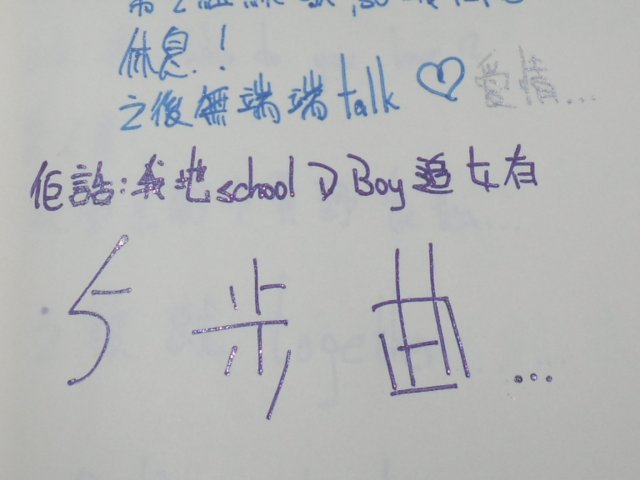 休息.!
之後無端端talk ♡愛情...
佢話:我地school D Boy追女有
5步曲...